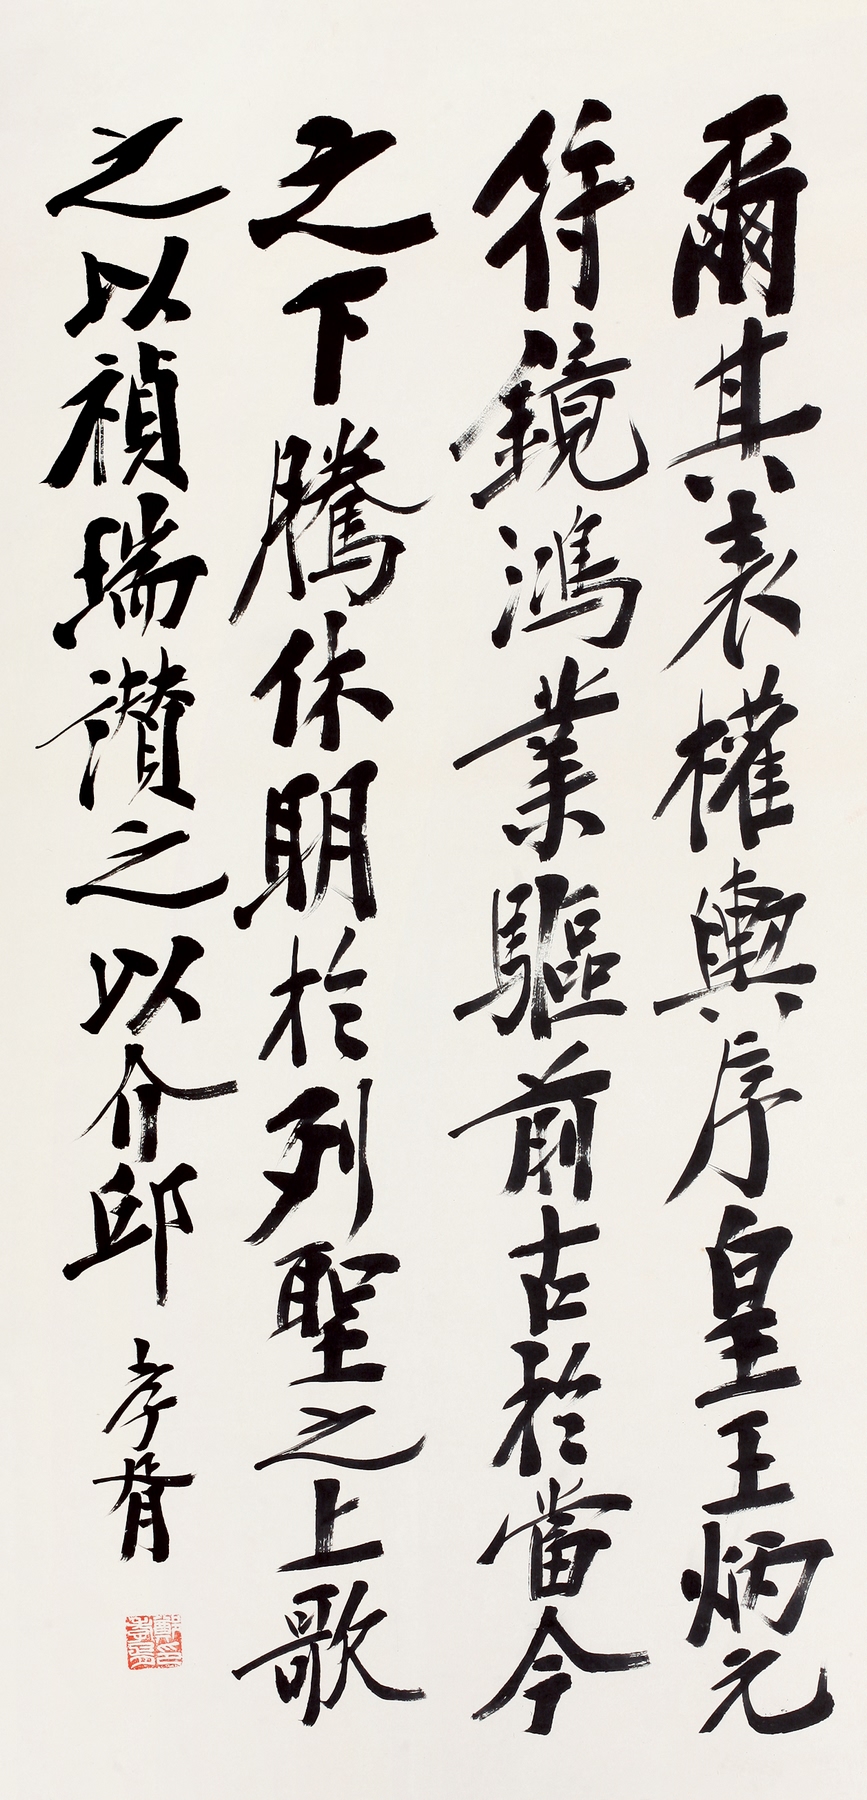 爾其表權輿序皇王炳元
符鏡鴻業驅前古於當今
之下騰休明於列聖之上歌
之以禎瑞讚之以介邱
孝胥
鄭孝胥印